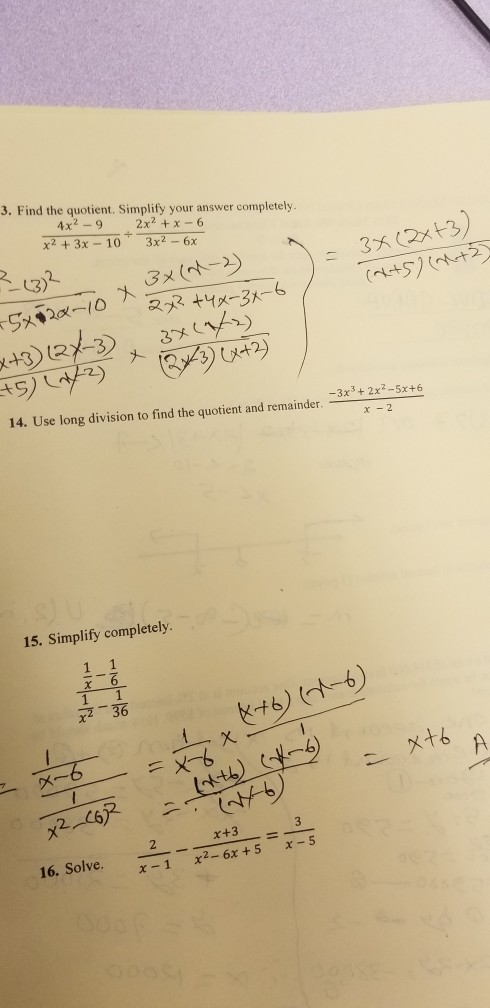 3. Find the quotient. Simplify your answer completely.
4x² − 9 / x² + 3x − 10 ÷ 2x² + x − 6 / 3x² − 6x
-(3)² / +5x-2x-10 × 3x(x-2) / 2x²+4x-3x-6 = 3x(2x+3) / (x+5)(x+2)
x+3)(2x-3) / +5)(x-2) × 3x(x-2) / (2x-3)(x+2)
14. Use long division to find the quotient and remainder. −3x³ + 2x² − 5x + 6 / x − 2
15. Simplify completely.
1/x − 1/6
1/x² − 1/36
= 1/x-6 / 1/x²-(6)² = 1/x-6 × (x+6)(x-6) / 1
= (x+6)(x-6) / (x-6) = x+6 A
16. Solve. 2/x − 1 − x+3/x² − 6x + 5 = 3/x − 5